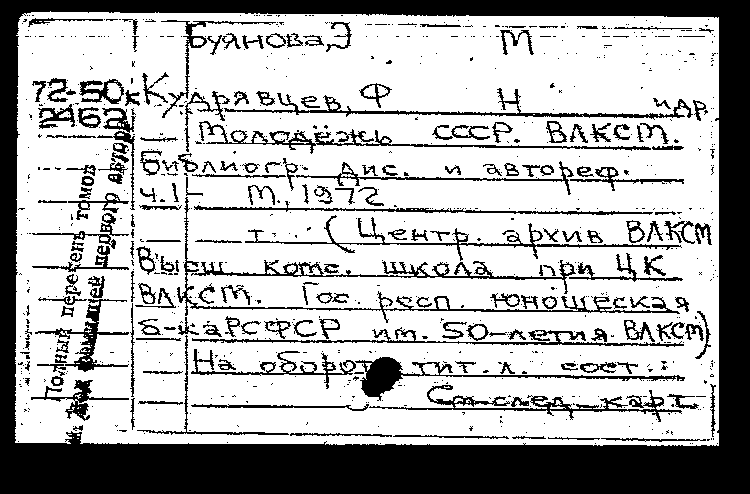 Буянова, Э М
72-50к
2162
Кудрявцев, Ф Н и др
Молодежь СССР. ВЛКСМ.
Библиогр. Дис. и автореф.
ч.1- М, 1972
т... (Центр. архив ВЛКСМ
Высш комс. школа при ЦК
ВЛКСМ. Гос респ. юношеская
б-ка РСФСР им. 50-летия ВЛКСМ)
На обороте тит. л. сост.:
См след карт
Полный перечень томов
под фамилией первого автора